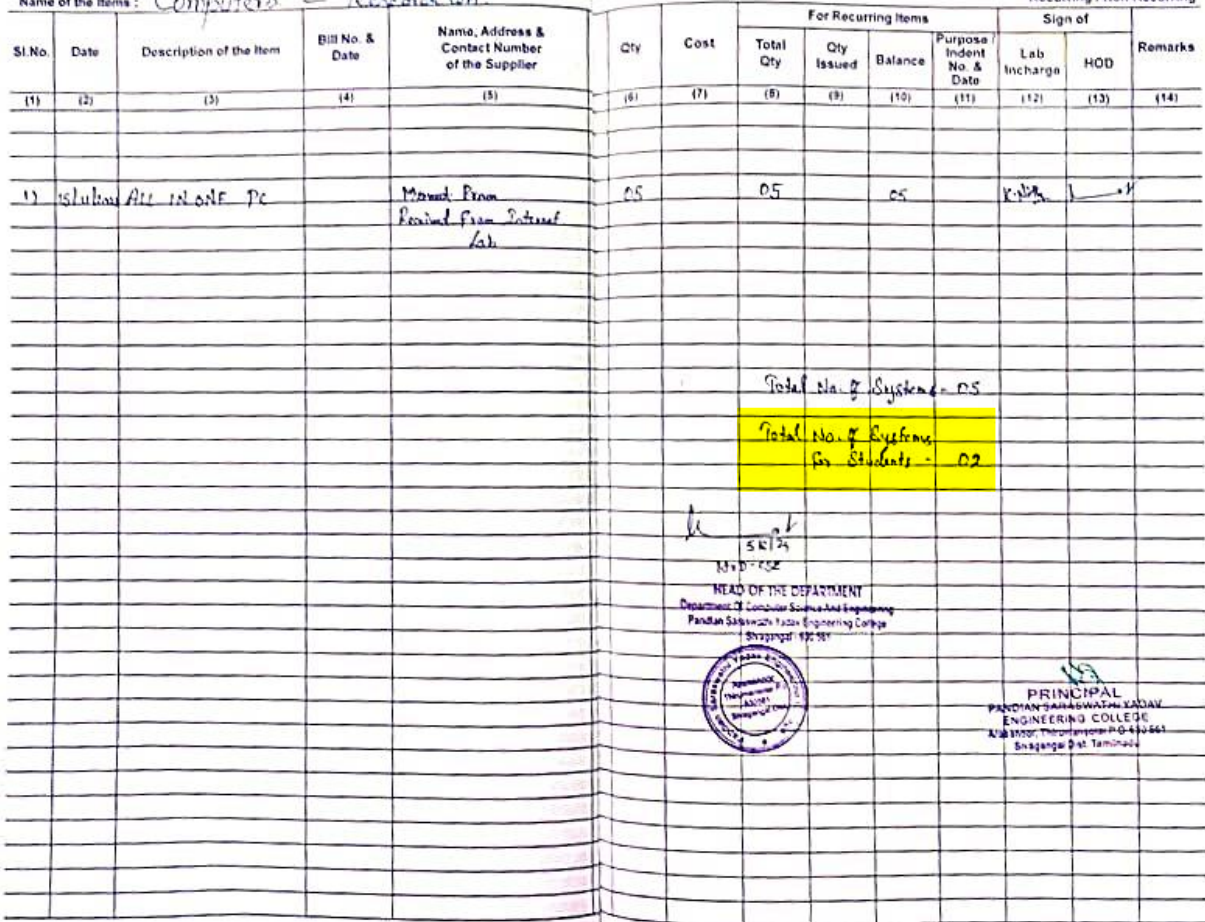 Name of the Items : Computers -
Sl.No. Date Description of the Item Bill No. & Date Name, Address & Contact Number of the Supplier Qty Cost For Recurring Items Sign of Remarks
Total Qty Qty Issued Balance Purpose / Indent No. & Date Lab Incharge HOD
(1) (2) (3) (4) (5) (6) (7) (8) (9) (10) (11) (12) (13) (14)
1) ALL IN ONE PC 05 05 05
Received From Internet
Lab
Total No. of Systems - 05
Total No. of Systems
for Students - 02
HOD-CSE
HEAD OF THE DEPARTMENT
Department Of Computer Science And Engineering
Pandian Saraswathi Yadav Engineering College
Sivagangai - 630 561
PRINCIPAL
PANDIAN SARASWATHI YADAV
ENGINEERING COLLEGE
Arasanoor, Thirumansolai P.O-630 561
Sivagangai Dist. Tamilnadu